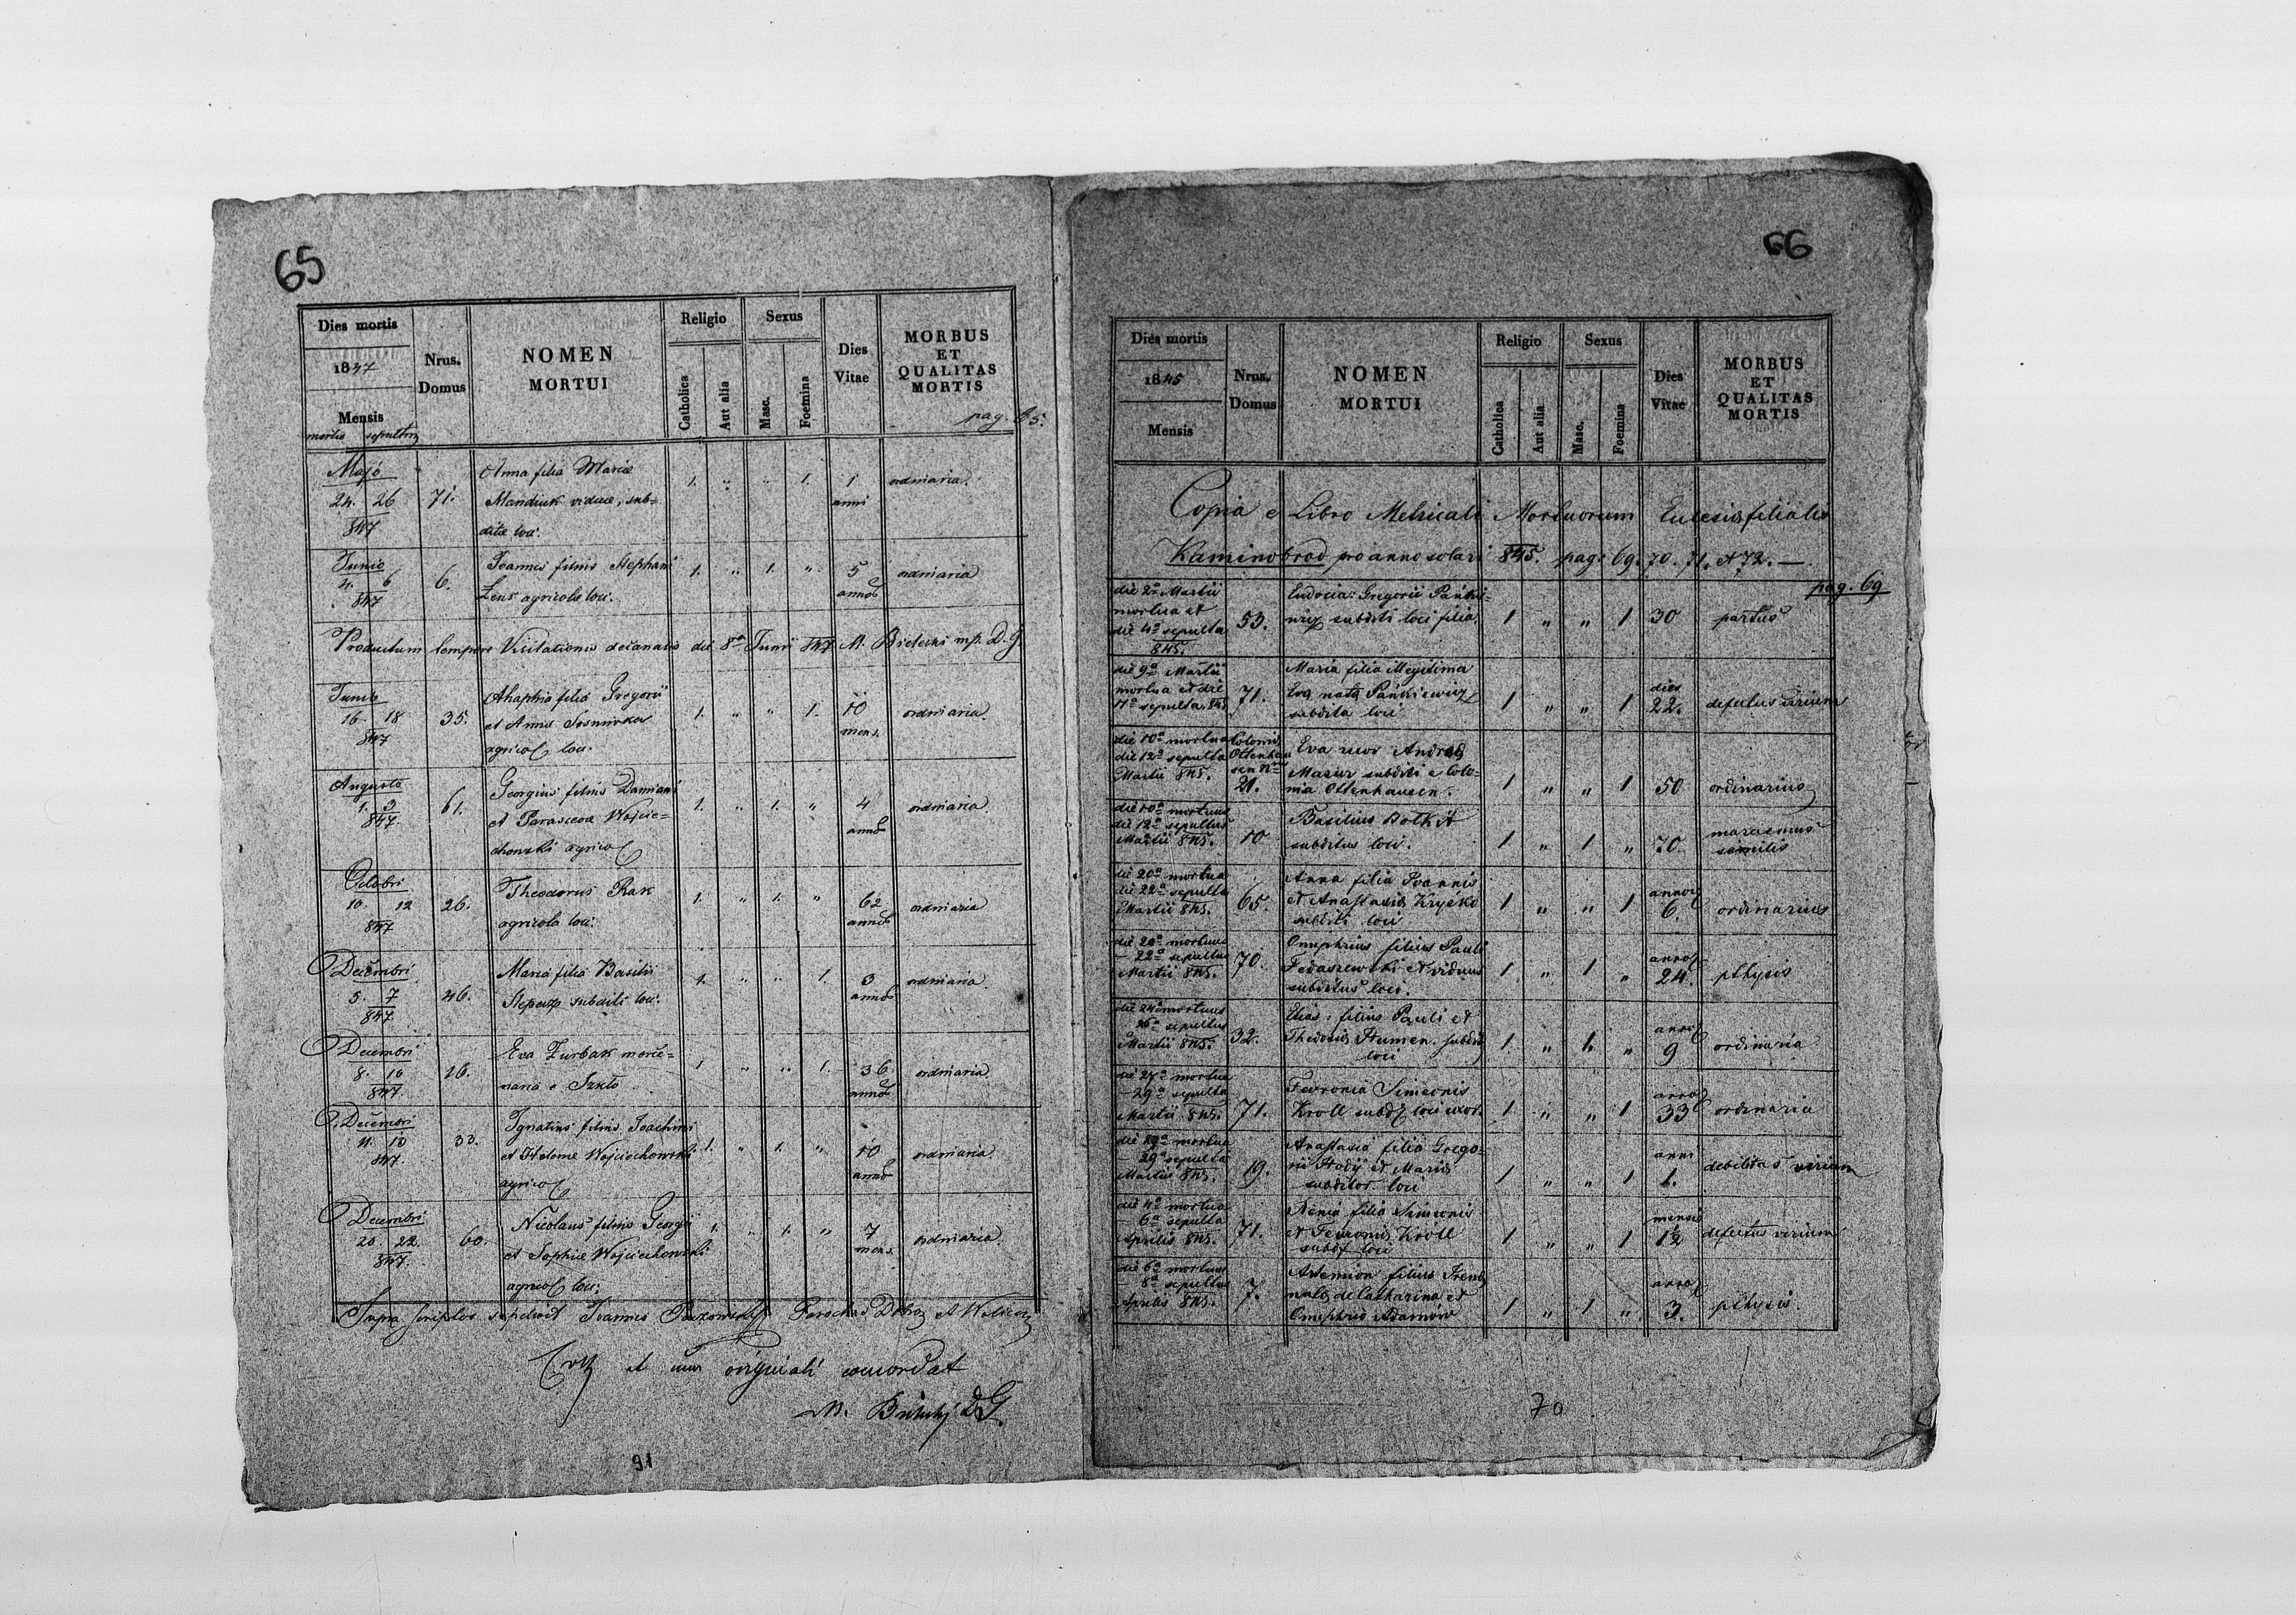 65
Dies mortis
1847
Mensis
mortis sepultrae
Nrus. Domus
NOMEN
MORTUI
Religio
Catholica
Aut alia
Sexus
Masc.
Foemina
Dies
Vitae
MORBUS
ET
QUALITAS
MORTIS
pag. 65.
Majo
24. 26
847
71.
Anna filia Mariae
Mandiuk viduae, sub=
ditae loci.
1. „ „ 1.
1
anni
ordinaria.
Junio
4. 6
847
6.
Joannes filius Stephani
Zens agricolae loci.
1. „ 1. „
5
annor
ordinaria
Productum tempore Visitationis decanalis die 8a Junii 847 M. Bielecki mp. D. G.
Junio
16. 18
847
35.
Ahaphia filia Gregorii
et Annae
agricol loci.
1. „ „ 1.
10
mens.
ordinaria.
Augusto
1. 3
847.
61.
Georgius filius Damiani
et Parasceviae Wojcie=
chowski agricol
1. „ 1. „
4
annor
ordinaria
Octobri
10. 12
847
26.
Theodorus Rak
agricola loci.
1. „ 1. „
62
annor
ordinaria
Decembri
5. 7
847.
46.
Maria filia Basilii
subditi loci.
1. „ „ 1.
3
annor
ordinaria
Decembri
8. 10
847.
16.
Eva Zurbak
e Szkło
1 „ „ 1.
36
annor
ordinaria
Decembri
11. 13
847.
33.
Ignatius filius Joachimi
et Helenae Wojciechowski
agricol
1. „ 1. „
10
annor
ordinaria
Decembri
20. 22.
847.
60.
Nicolaus filius Georgii
et Sophiae Wojciechowski
agricol loci.
1. „ 1. „
7
mens.
ordinaria.
Supra scriptos sepelivit Joannes Parochus
et cum originali concordat
M. D G.
91
66
Dies mortis
1845
Mensis
Nrus.
Domus
NOMEN
MORTUI
Religio
Catholica
Aut alia
Sexus
Masc.
Foemina
Dies
Vitae
MORBUS
ET
QUALITAS
MORTIS
Copia e Libro Metricali Mortuorum Eclesiae filialis
Kaminobrod pro anno solari 845. pag: 69. 70. 71. et 72. —
pag. 69
die 2a Martii
mortua et
die 4a sepulta
845.
53.
Eudocia: Gregorii Pańki=
subditi loci filia.
1 „ „ 1
30
partus
die 9a Martii
mortua et die
11a sepulta 845
71.
Maria filia illegitima
Eva nata Pańkiewicz
subdita loci
1 „ „ 1
dies
22.
defectus virium
die 10a mortua
die 12a sepulta
Martii 845.
Colonia
Ottenhau
sen Nro
21.
Eva uxor Andreae
Mazur subditi e colo=
nia Ottenhausen.
1 „ „ 1
50
ordinarius
die 10a mortuus
die 12a sepultus
Martii 845.
10
Basilius Botkit
subditus loci.
1 „ 1 „
70
marasmus
senilis
die 20a mortua
die 22a sepulta
Martii 845.
65.
Anna filia Joannis
et Anastasiae Kryśko
subditi loci
1 „ „ 1
annor
6.
ordinarius
die 20a mortuus
— 22a sepultus
Martii 845.
70.
Onuphrius filius Pauli
Fedaszewski et viduus
subditus loci.
1 „ 1 „
annor
24.
pthysis
die 24a mortuus
26a sepultus
Martii 845.
32.
Elias: filius Pauli et
Theodosiae Humen. subdit
loci
1 „ 1. „
annor
9
ordinaria
die 27a mortua
— 29a sepulta
Martii 845.
71.
Fevronia Simeonis
Kroll subd loci uxor.
1 „ „ 1
annor
33
ordinaria
die 29a mortua
— 29a sepulta
Martii 845.
19.
Anastasia filia Grego=
rii et Mariae
subditor. loci
1 „ „ 1
anni
1.
debilitas virium
die 4a mortua
— 6a sepulta
Aprilis 845.
71.
Xenia filia Simeonis
et Fevroniae Kroll
subd loci
1 „ „ 1
mensis
1/2
defectus virium
die 6a mortuus
— 8a sepultus
Aprilis 845.
7.
Artemion filius
de Catharina et
Onuphrio Adamów
1 „ 1 „
annor
3.
pthysis.
70